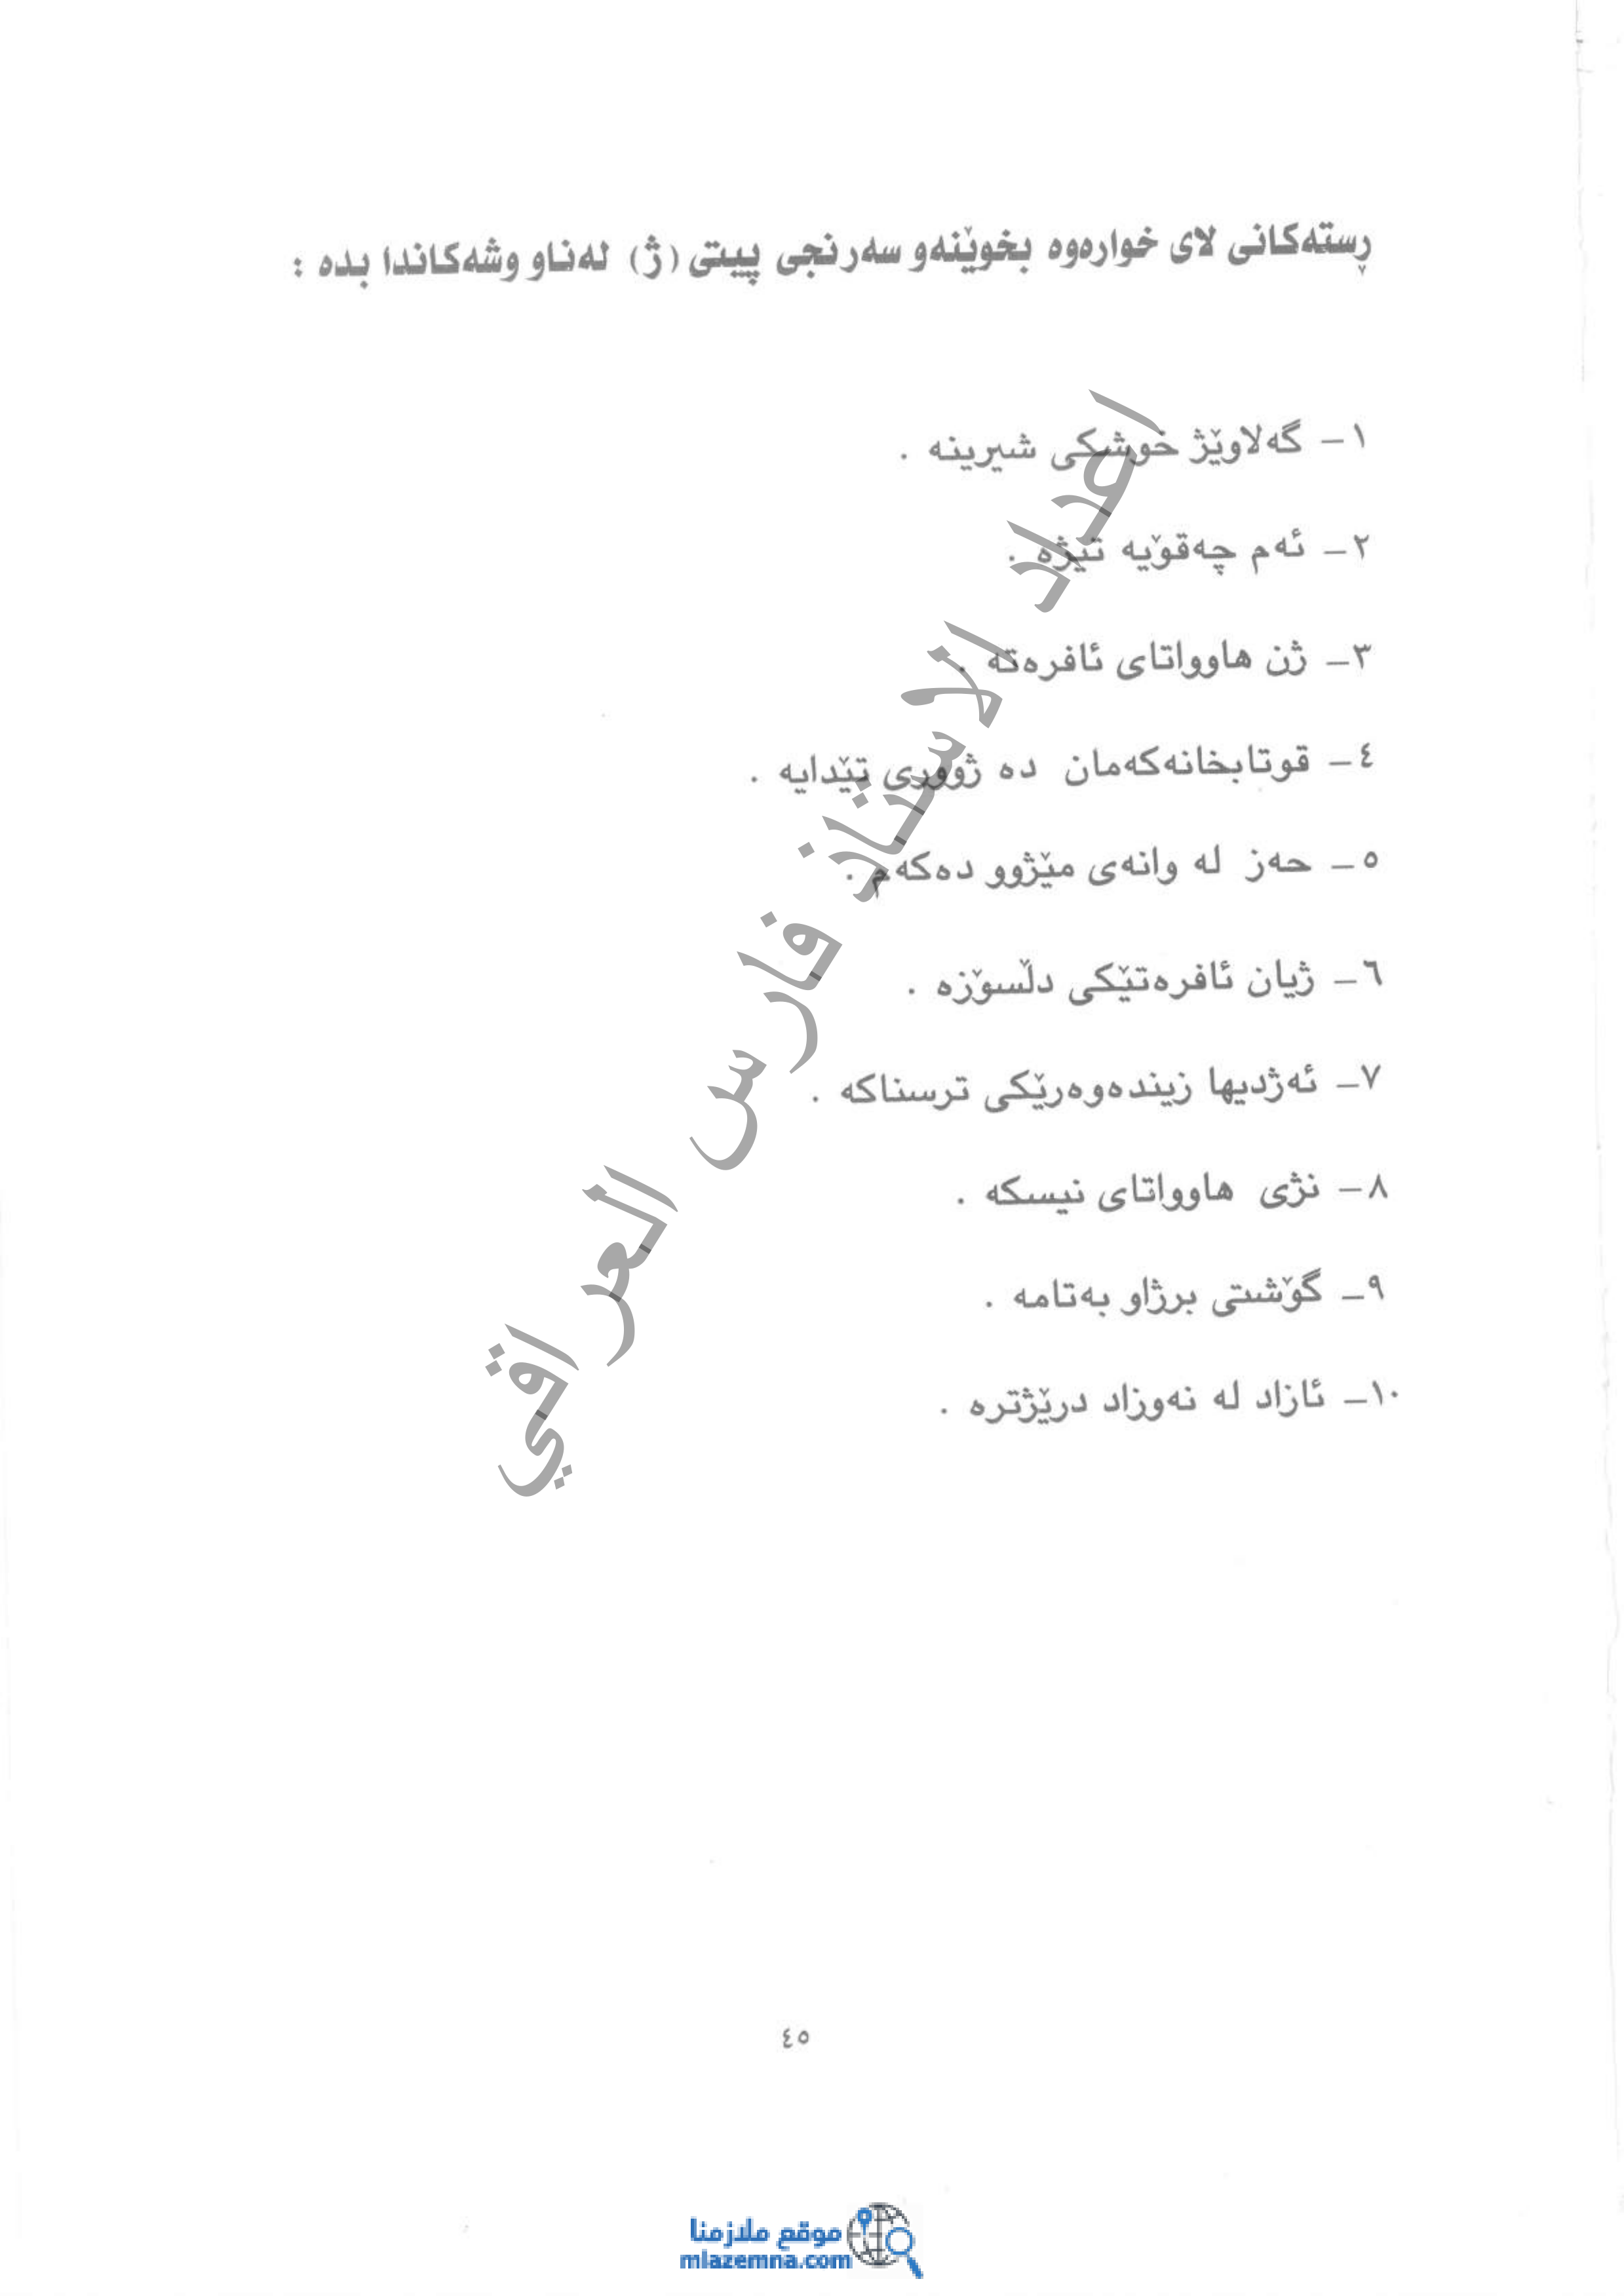 ڕستەکانی لای خوارەوە بخوێنەو سەرنجی پیتی (ژ) لەناو وشەکاندا بدە :
١– گەلاوێژ خوشکی شیرینە .
٢– ئەم چەقۆیە تیژە .
٣– ژن هاوواتای ئافرەتە .
٤– قوتابخانەکەمان دە ژووری تێدایە .
٥– حەز لە وانەی مێژوو دەکەم .
٦– ژیان ئافرەتێکی دڵسۆزە .
٧– ئەژدیها زیندەوەرێکی ترسناکە .
٨– نژی هاوواتای نیسکە .
٩– گۆشتی برژاو بەتامە .
١٠– ئازاد لە نەوزاد درێژترە .
اعداد الاستاذ فارس العراقي
٤٥
موقع ملازمنا
mlazemna.com